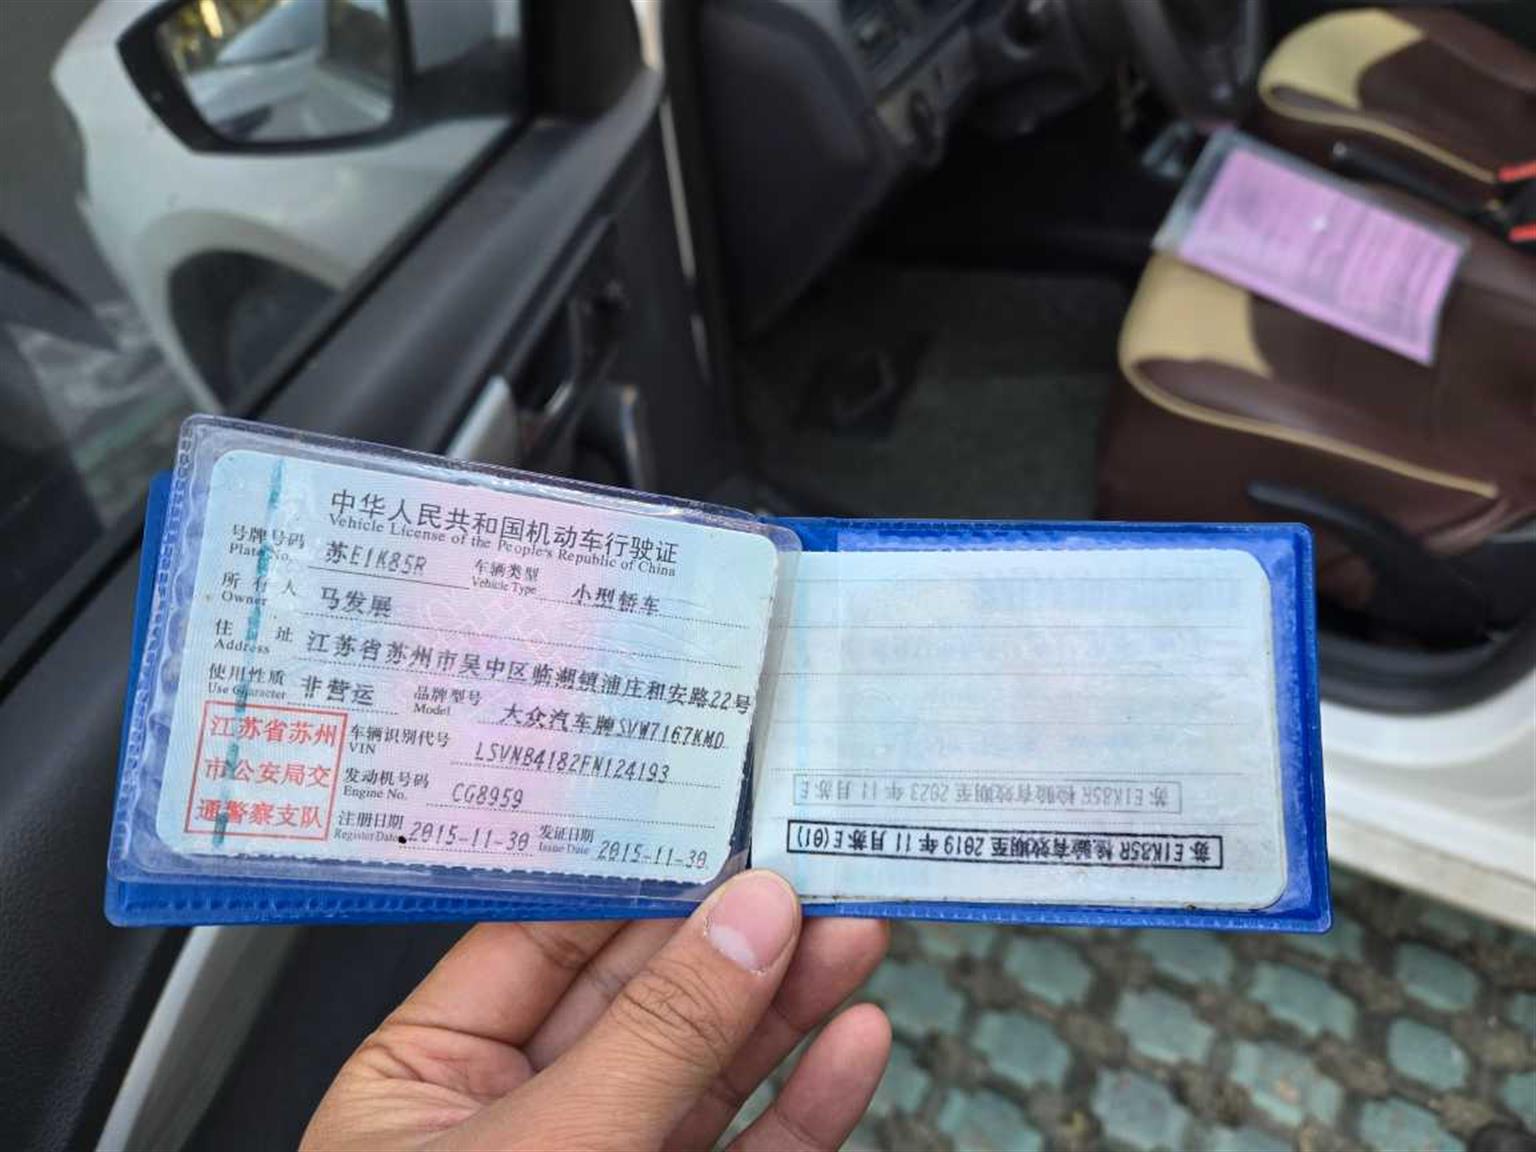 中华人民共和国机动车行驶证
Vehicle License of the People's Republic of China
号牌号码 苏E1K85R 车辆类型 小型轿车
Plate No. Vehicle Type
所有人 马发展
Owner
住址 江苏省苏州市吴中区临湖镇浦庄和安路22号
Address
使用性质 非营运 品牌型号 大众汽车牌SVW7167KMD
Use Character Model
江苏省苏州
市公安局交
通警察支队
车辆识别代号 LSVNB4182FN124193
VIN
发动机号码 CG8959
Engine No.
注册日期 2015-11-30 发证日期 2015-11-30
Register Date Issue Date
苏E1K85R 检验有效期至 2023年11月苏E
苏E1K85R 检验有效期至 2019年11月苏E(01)